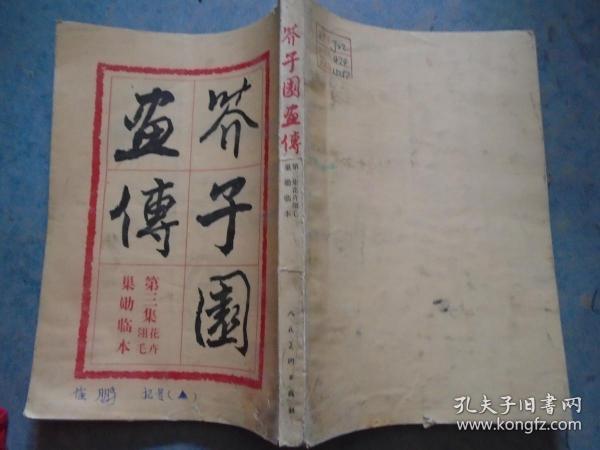 芥子園
畫傳
第三集花卉翎毛
巢勋临本
芥子園畫傳
第三集花卉翎毛
巢勋临本
人民美术出版社
J42
孔夫子旧书网
www.kongfz.com